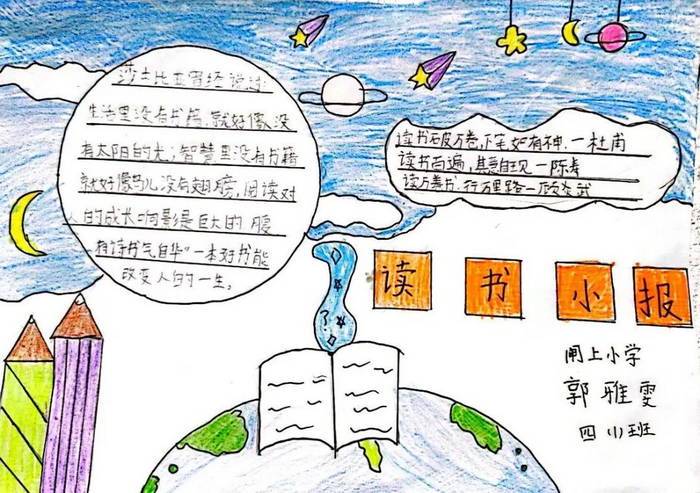 莎士比亚曾经说过:
生活里没有书籍,就好像没
有太阳的光;智慧里没有书籍
就好像鸟儿没有翅膀,阅读对
人的成长响影是巨大的"腹
有诗书气自华"一本好书能
改变人的一生。
读书破万卷,下笔如有神.一杜甫
读书百遍,其意自现一陈寿
读万卷书.行万里路一顾炎武
读书小报
闸上小学
郭雅雯
四(1)班